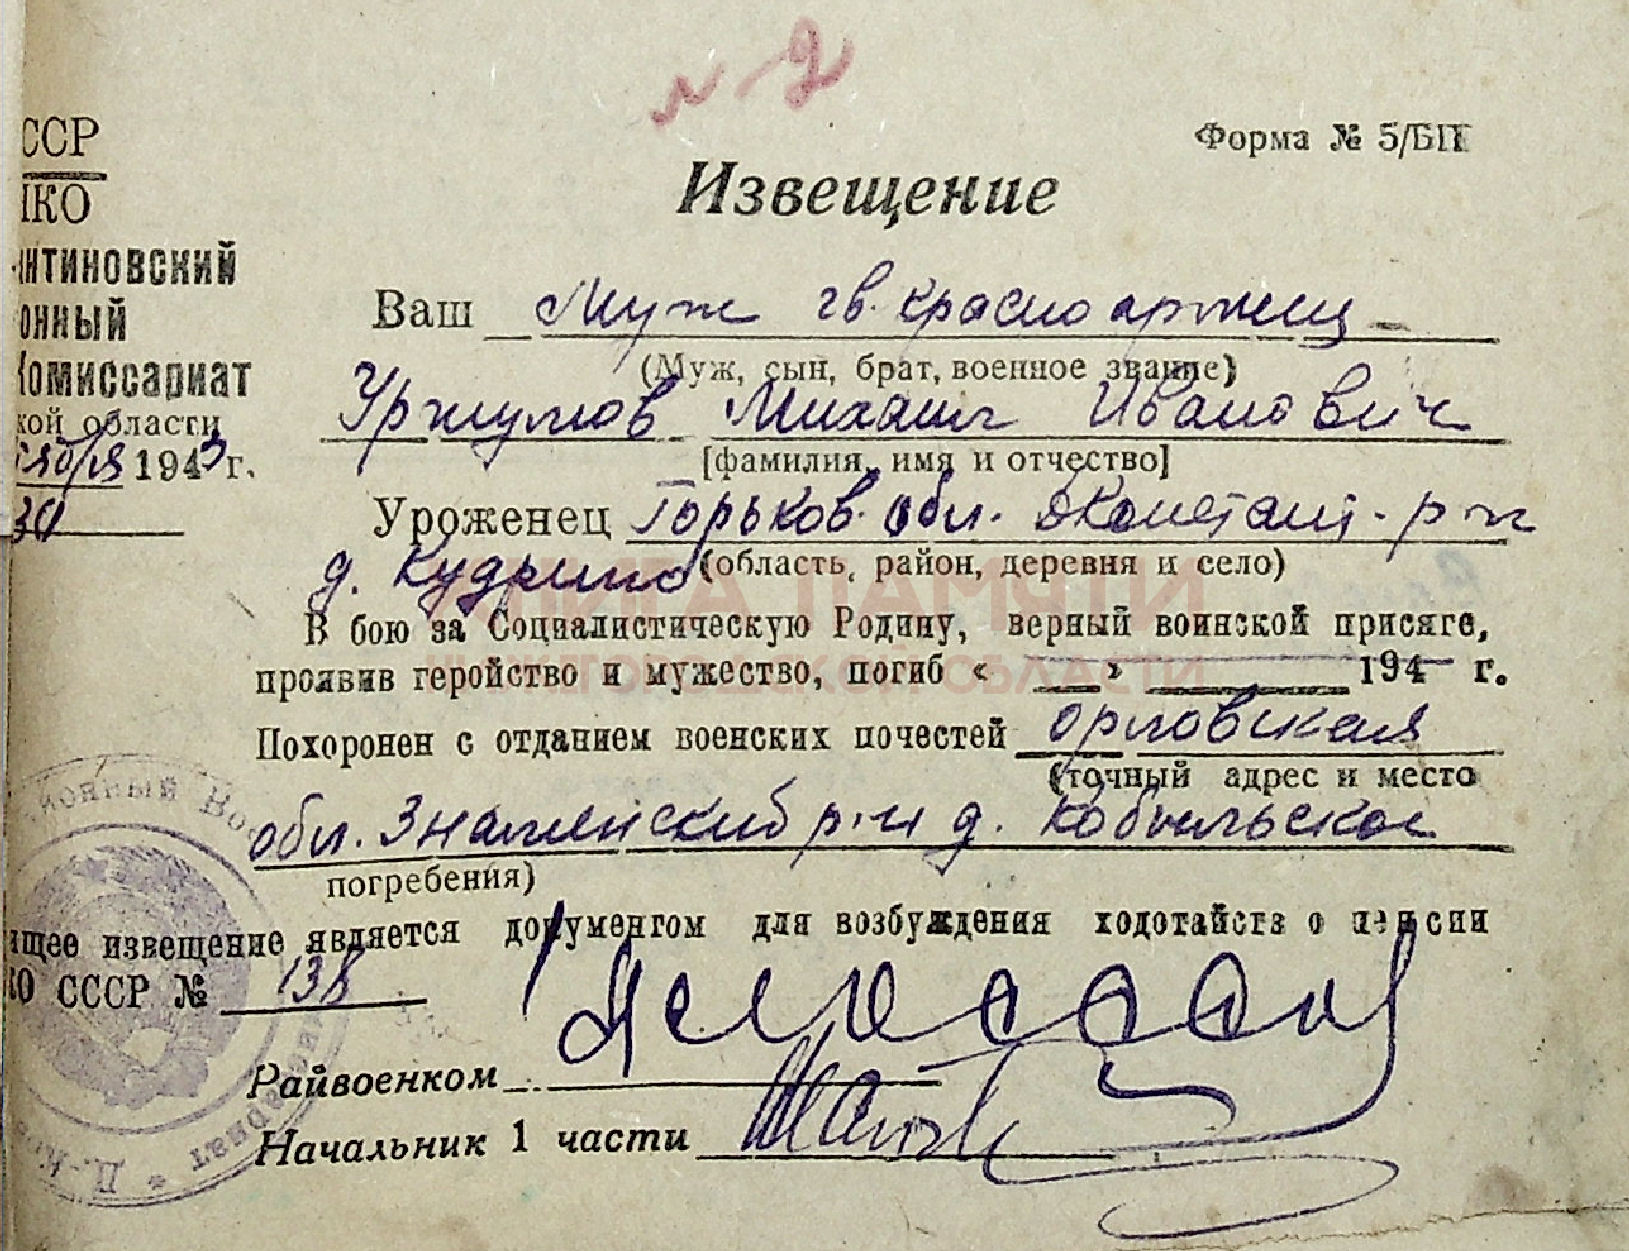 № 2
ССР
Форма № 5/БП
НКО
Извещение
нтиновский
онный
Комиссариат
кой области
тября 1943 г.
30
Ваш Муж гв. красноармеец
(Муж, сын, брат, военное звание)
Уржумов Михаил Иванович
[фамилия, имя и отчество]
Уроженец Горьков. обл. Дконстант. р-н
д. Кудрино (область, район, деревня и село)
КНИГА ПАМЯТИ
НИЖЕГОРОДСКОЙ ОБЛАСТИ
В бою за Социалистическую Родину, верный воинской присяге,
проявив геройство и мужество, погиб « » 194 г.
Похоронен с отданием военских почестей Орловская
(точный адрес и место
обл. Знаменский р-н д. Кобыльское
погребения)
ящее извещение является документом для возбуждения ходотайств о пенсии
КО СССР № 138
Райвоенком
Начальник 1 части